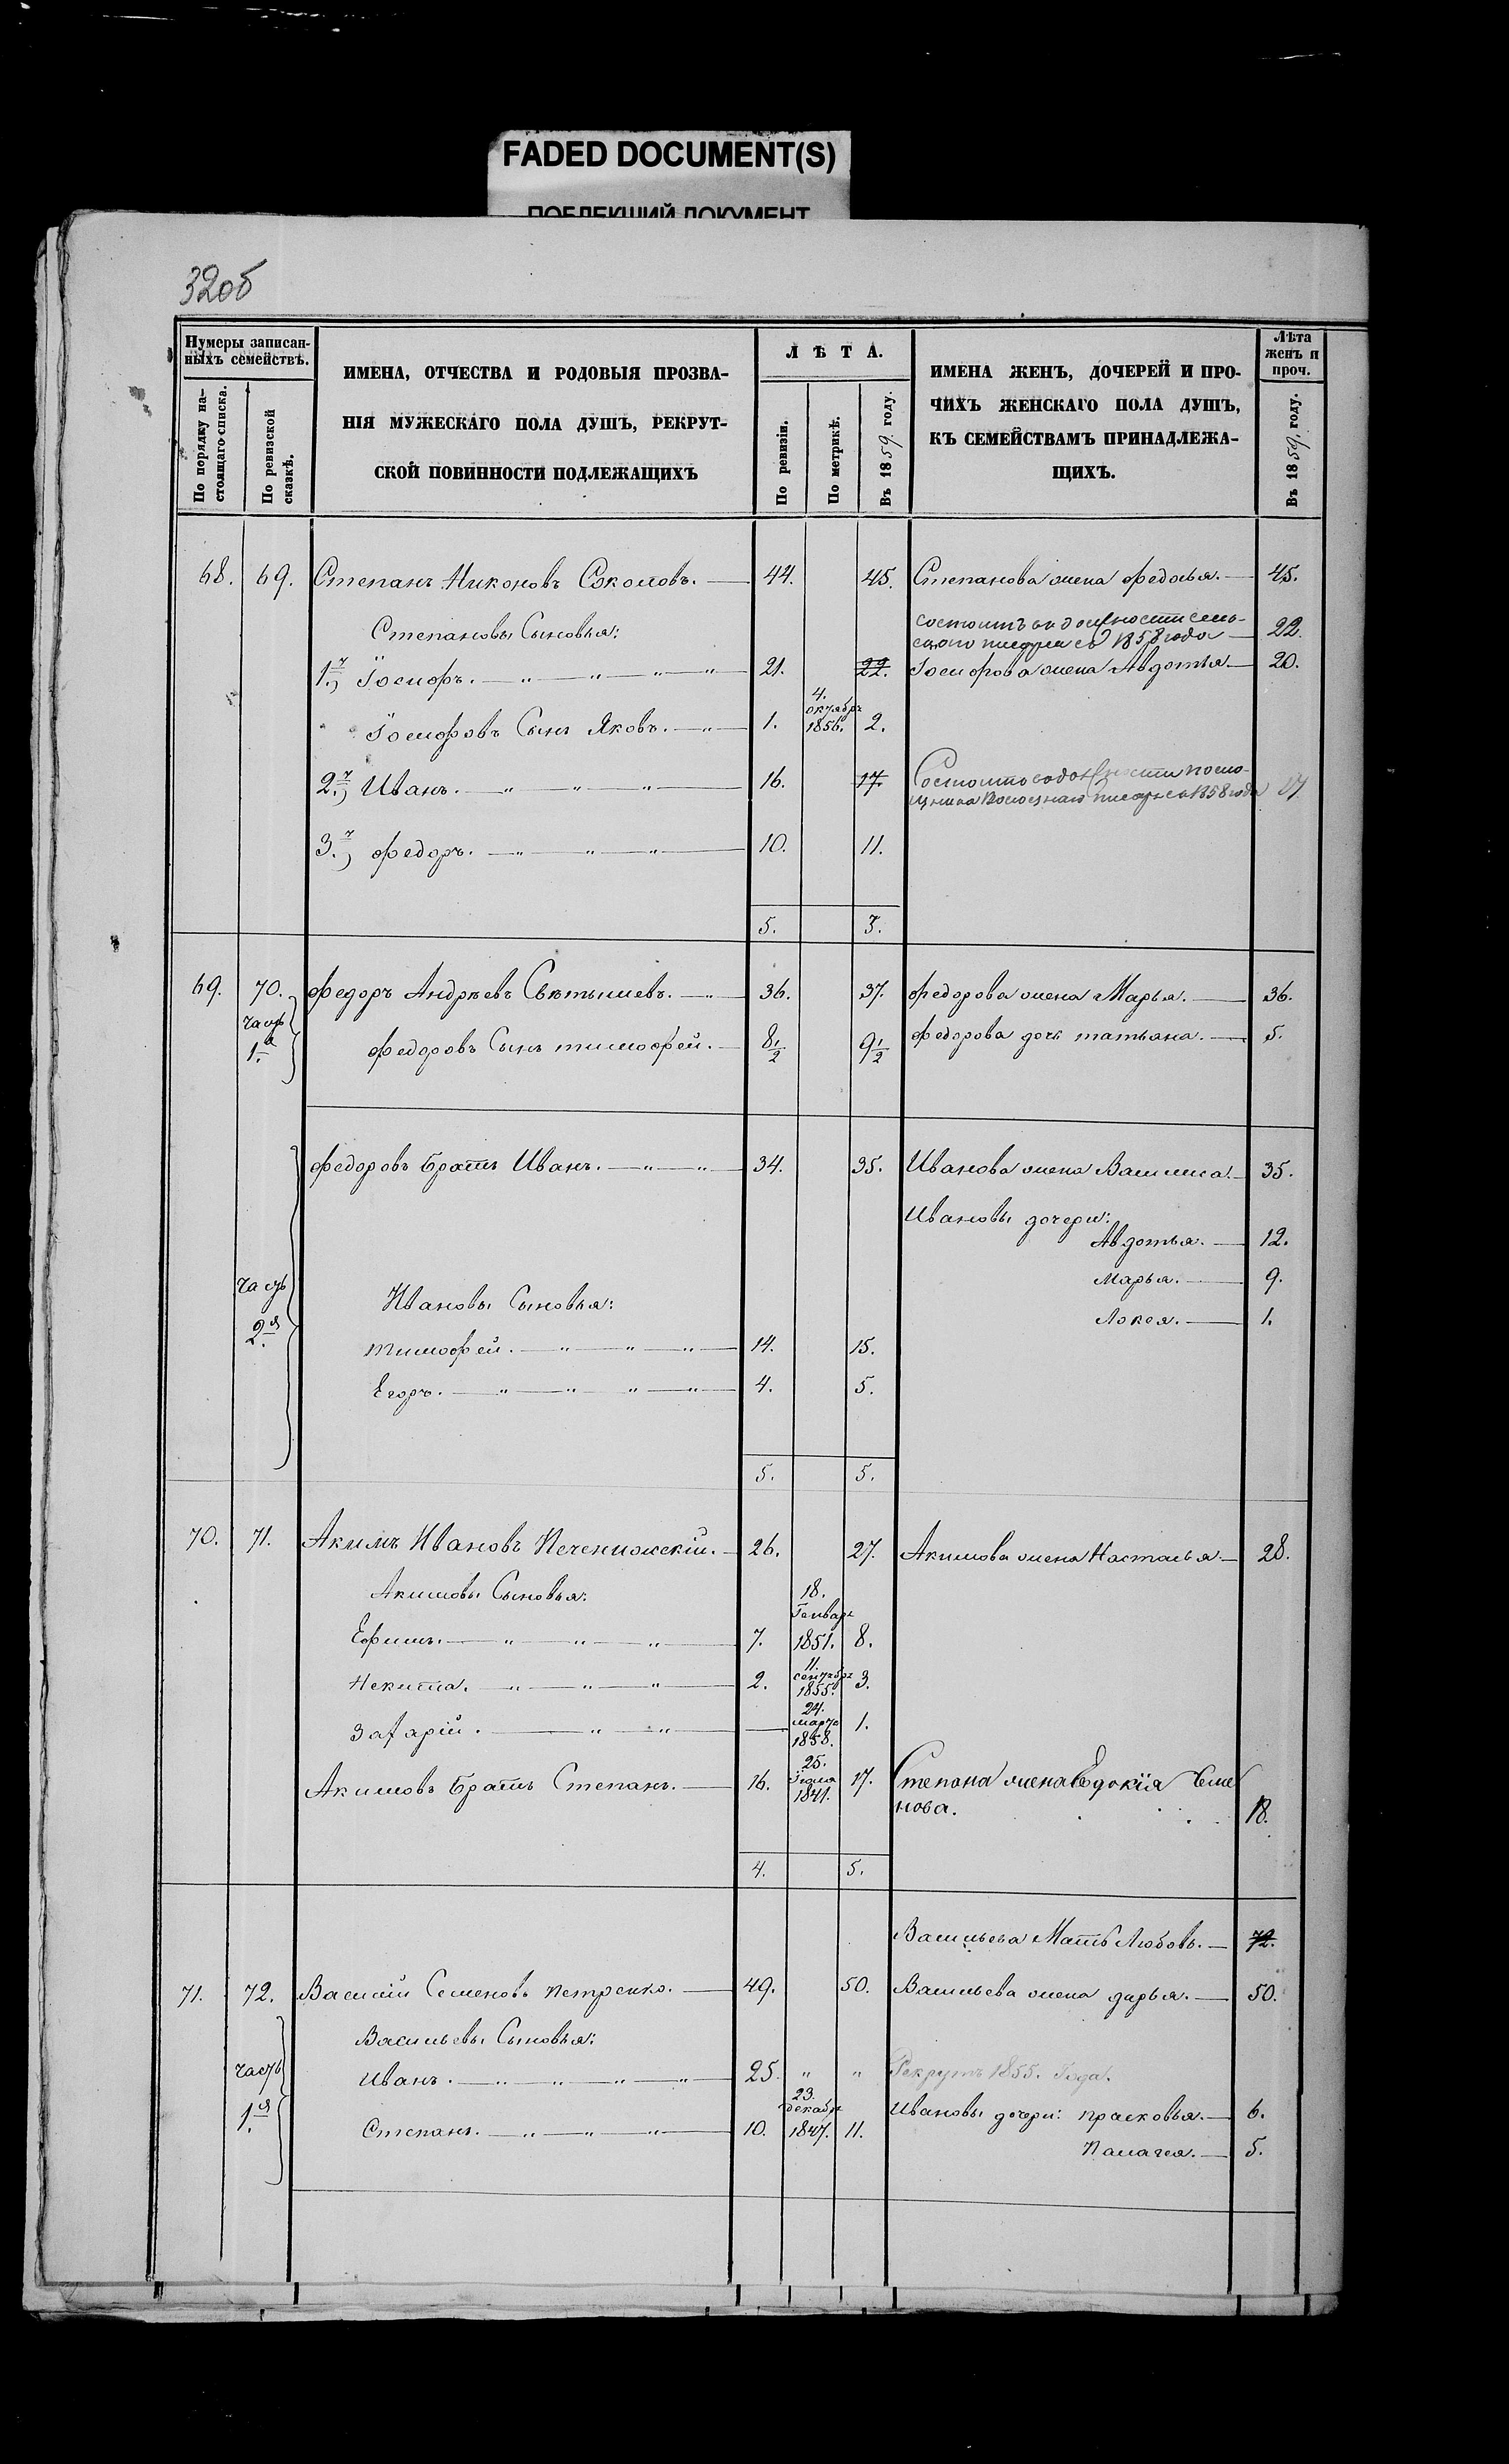 FADED DOCUMENT(S)
ПОБЛЕКШИЙ ДОКУМЕНТ
32об
Нумеры записан-
ныхъ семействъ.
По порядку на-
стоящаго списка.
По ревизской
сказкѣ.
ИМЕНА, ОТЧЕСТВА И РОДОВЫЯ ПРОЗВА-
НІЯ МУЖЕСКАГО ПОЛА ДУШЪ, РЕКРУТ-
СКОЙ ПОВИННОСТИ ПОДЛЕЖАЩИХЪ
ЛѢТА.
По ревизіи.
По метрикѣ.
Въ 1859 году.
ИМЕНА ЖЕНЪ, ДОЧЕРЕЙ И ПРО-
ЧИХЪ ЖЕНСКАГО ПОЛА ДУШЪ,
КЪ СЕМЕЙСТВАМЪ ПРИНАДЛЕЖА-
ЩИХЪ.
Лѣта
женъ и
проч.
Въ 1859. году.
68. 69. Степанъ Никоновъ Соколовъ. 44. 45. Степанова жена Федосья. 45.
Степановы Сыновья: состоитъ въ должности сель-
скаго писаря съ 1858 года 22.
1.) Іосифъ. 21. 22. Іосифова жена Авдотья. 20.
Іосифовъ Сынъ Яковъ. 1. 4. октября 1856. 2.
2.) Иванъ. 16. 17. Состоитъ въ должности помо-
щника Волостнаго писаря съ 1858 года 17
3.) Федоръ. 10. 11.
5. 3.
69. 70. Федоръ Андреевъ 36. 37. Федорова жена Марья. 36.
часть 1я Федоровъ Сынъ Тимофей. 8 1/2 9 1/2 Федорова дочь Татьяна. 5.
Федоровъ Братъ Иванъ. 34. 35. Иванова жена Василиса. 35.
Ивановы дочери:
Авдотья. 12.
часть 2я Марья. 9.
Ивановы Сыновья:
1.
Тимофей. 14. 15.
Егоръ. 4. 5.
5. 5.
70. 71. Акимъ Ивановъ 26. 27. Акимова жена Настасья. 28.
Акимовы Сыновья:
Ефимъ. 7. 18. Генваря 1851. 8.
Некита. 2. 11. сентября 1855. 3.
Захарій. 24. марта 1858. 1.
Акимовъ Братъ Степанъ. 16. 25. 1841. 17. Степана жена Евдокія Семе
нова. 18.
4. 5.
Васильева Мать Любовь. 72.
71. 72. Василій Семеновъ Петренко. 49. 50. Васильева жена Дарья. 50.
Васильевы Сыновья:
часть 1я Иванъ. 25. " " Рекрутъ 1855. Года.
Степанъ. 10. 23. декабря 1847. 11. Ивановы дочери: Прасковья. 6.
Палагея. 5.